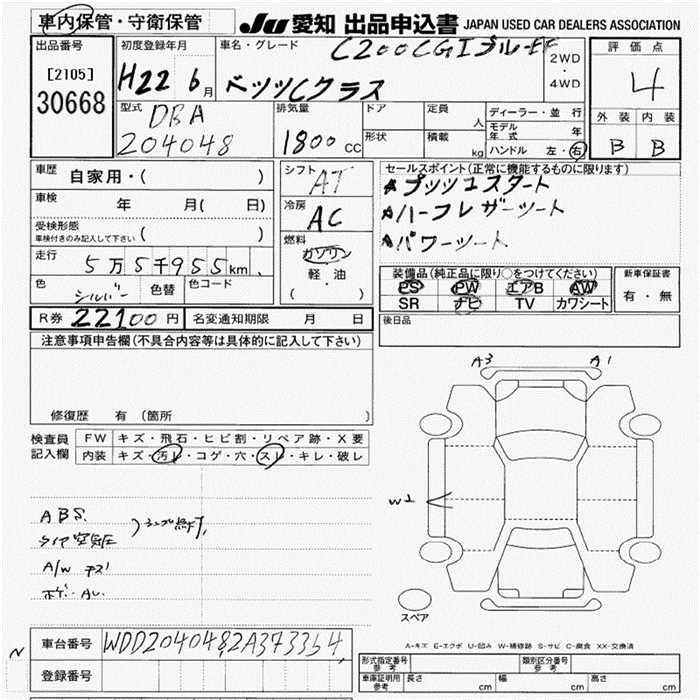 車内保管・守衛保管
JU 愛知 出品申込書 JAPAN USED CAR DEALERS ASSOCIATION
出品番号
[2105]
30668
初度登録年月
H22 6月
車名・グレード
C200CGIブルーEF
ベンツCクラス
2WD
・
4WD
評価点
4
外装 内装
B B
型式
DBA
204048
排気量
1800cc
ドア
形状
定員 人
積載 kg
ディーラー・並行
モデル年式 年
ハンドル 左・右
車歴 自家用・( )
車検 年 月( 日)
受検形態
車検付きのみ記入して下さい ( )
走行 5万5千955km
色 シルバー 色替 色コード
シフト AT
冷房 AC
燃料
ガソリン
軽・油
( )
セールスポイント(正常に機能するものに限ります)
プッシュスタート
ハーフレザーシート
パワーシート
装備品(純正品に限り○をつけてください)
PS PW エアB AW
SR ナビ TV カワシート
新車保証書
有・無
R券 22100円 名変通知期限 月 日
後日品
注意事項申告欄(不具合内容等は具体的に記入して下さい)
修復歴 有 (箇所 )
検査員記入欄
FW キズ・飛石・ヒビ割・リペア跡・X要
内装 キズ・汚レ・コゲ・穴・スレ・キレ・破レ
A3 A1
ABS
タイヤ空気圧
A/W キズ
W2
スペア
A-キズ E-エクボ U-凹み W-補修跡 S-サビ C-腐食 XX-交換済
車台番号 WDD2040482A373354
登録番号
形式指定番号 参考
類別区分番号 参考
車庫証明用 参考 長さ cm 幅 cm 高さ cm